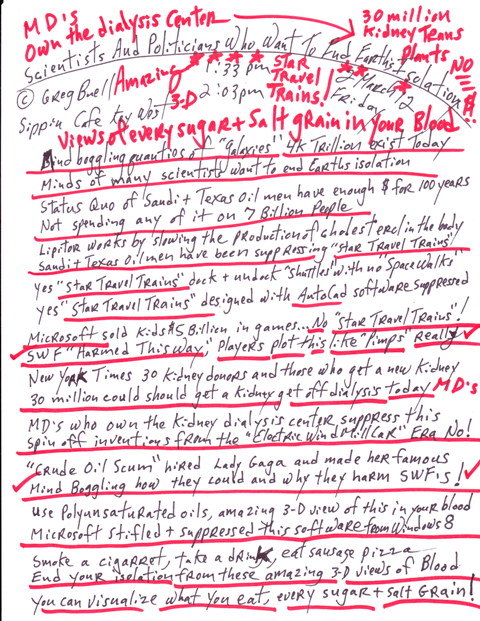 MD's
Own the dialysis Center
30 million
Kidney Trans
Plants
NO
$!
Scientists And Politicians Who Want To End Earths Isolation
© Greg Buell/Amazing
3-D
1:33 pm
STAR
Travel
Trains!
March 2
Friday
Sippin Cafe Key West
2:03 pm
Views of every sugar + Salt grain in Your Blood
Mind boggling quanties of "Galaxies" 4k Trillion exist Today
Minds of many scientists want to end Earths isolation
Status Quo of Saudi + Texas Oil men have enough $ for 100 years
Not spending any of it on 7 Billion People
Lipitor works by slowing the production of cholesterol in the body
Saudi + Texas Oil men have been suppressing "Star Travel Trains"
Yes "Star Travel Trains" dock + undock "shuttles" with no "Space Walks"
Yes "Star Travel Trains" designed with AutoCad software suppressed
Microsoft sold Kids $5 Billion in games... No "Star Travel Trains"!
SWF "Harmed This Way," Players plot this like "Pimps" Really
New York Times 30 Kidney donors and those who get a new Kidney
30 million could should get a Kidney get off dialysis today MD's
MD's who own the Kidney dialysis center suppress this
Spin off inventions from the "Electric WindMill Car" Era No!
"Crude Oil Scum" hired Lady Gaga and made her famous
Mind Boggling how they could and why they harm SWF's!
Use Polyunsaturated oils, amazing 3-D view of this in your blood
Microsoft stifled + suppressed this software from Windows 8
Smoke a cigarret, take a drink, eat sausage pizza
End your isolation from these amazing 3-D views of Blood
You can visualize what you eat, every sugar + salt Grain!